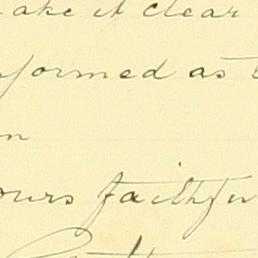 ake it clear
formed as t
n
ours faithfu